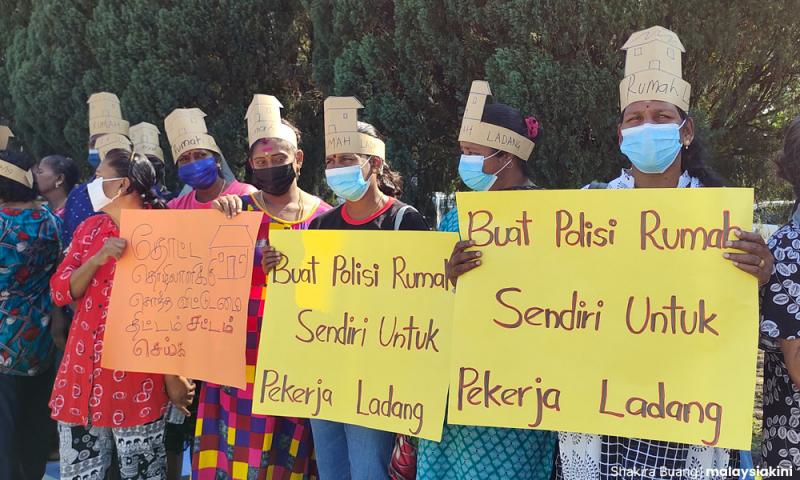 RUMAH
MAH
MAH LADANG
RUMAH
தோட்ட
தொழிலாளர்க்கு
சொந்த வீட்டுடமை
திட்டம் சட்டம்
செய்க
Buat Polisi Rumah
Sendiri Untuk
Pekerja Ladang
Buat Polisi Rumah
Sendiri Untuk
Pekerja Ladang
Shakira Buang malaysiakini